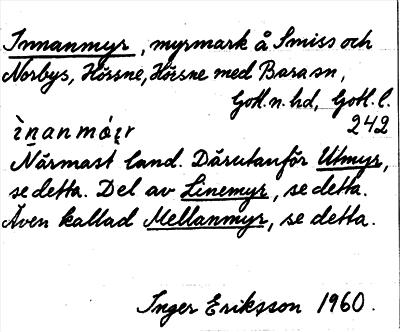 Innanmyr, myrmark å Smiss och
Norbys, Hörsne, Hörsne med Bara sn,
Gotl. n. hd, Gotl. l.
242
ìnanmór
Närmast land. Därutanför Utmyr,
se detta. Del av Linemyr, se detta.
Även kallad Mellanmyr, se detta.
Inger Eriksson 1960.